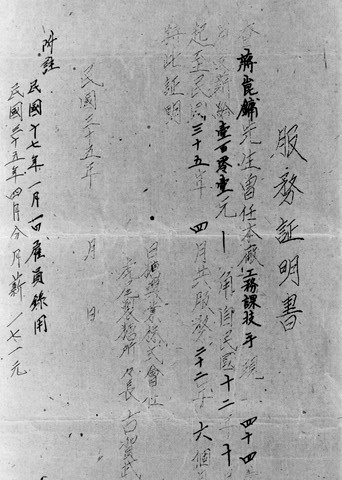 服務証明書
蔣崑錦先生曾任本廠工務課技手現 四十四
月薪給壹百零壹元 一角自民國十二年十
起至民國三十五年 四月共服務二十二年六個
與此証明
日糖興業株式會社
虎尾製糖所 所長
民國三十五年 月 日
附註
民國十七年一月一日雇員錄用
民國三十五年四月分月薪 一七一元